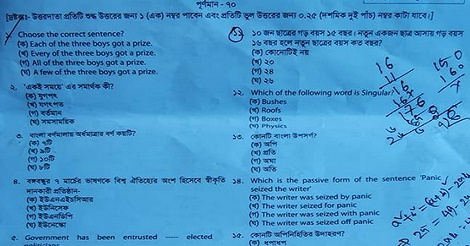 পূর্ণমান - ৭০
[দ্রষ্টব্যঃ- উত্তরদাতা প্রতিটি শুদ্ধ উত্তরের জন্য ১ (এক) নম্বর পাবেন এবং প্রতিটি ভুল উত্তরের জন্য ০.২৫ (দশমিক দুই পাঁচ) নম্বর কাটা যাবে।]
Choose the correct sentence?
(ক) Each of the three boys got a prize.
(খ) Every of the three boys got a prize.
(গ) All of the three boys got a prize.
(ঘ) A few of the three boys got a prize.
২. 'একই সময়ে' এর সমার্থক কী?
(ক) যুগপৎ
(খ) যগণৎপত
(গ) বর্তমান
(ঘ) সমসাময়িক
৩. বাংলা বর্ণমালায় অর্ধমাত্রার বর্ণ কয়টি?
(ক) ৭টি
(খ) ৯টি
(গ) ১০টি
(ঘ) ৮টি
৪. বঙ্গবন্ধুর ৭ মার্চের ভাষণকে বিশ্ব ঐতিহ্যের অংশ হিসেবে স্বীকৃতি
দানকারী প্রতিষ্ঠান-
(ক) ইউএনএইচসিআর
(খ) ইউনিসেফ
(গ) ইউএনডিপি
(ঘ) ইউনেস্কো
৫. Government has been entrusted ___ elected
১১. ১০ জন ছাত্রের গড় বয়স ১৫ বছর। নতুন একজন ছাত্র আসায় গড় বয়স
১৬ বছর হলে নতুন ছাত্রের বয়স কত বছর?
(ক) কোনোটিই নয়
(খ) ২০
(গ) ২৪
(ঘ) ২৬
১২. Which of the following word is Singular?
(ক) Bushes
(খ) Roofs
(গ) Boxes
(ঘ) Physics
১৩. কোনটি বাংলা উপসর্গ?
(ক) অপি
(খ) প্রতি
(গ) অঘা
(ঘ) অতি
১৪. Which is the passive form of the sentence 'Panic
seized the writer'
(ক) The writer was seized by panic
(খ) The writer seized for panic
(গ) The writer was seized with panic
(ঘ) The writer was seized off panic
১৫. কোনটি অপিনিহিতির উদাহরণ?